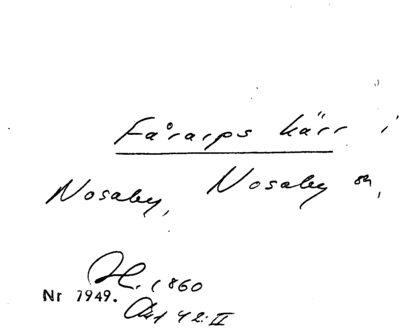 Fårarps kärr i
Nosaby, Nosaby sn,
H. 1860
Nr 7949.
Akt 42:II